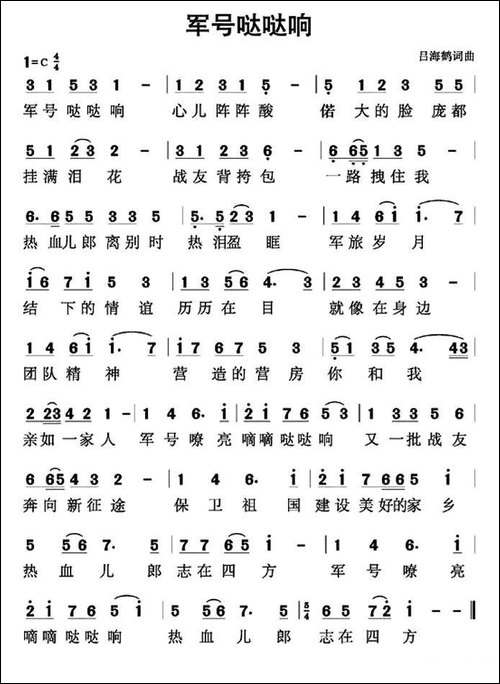 军号哒哒响
1=C 4/4
吕海鹤词曲
3 1 5 3 1 - | 1 2 3 1 5 - | 5 1 2 3 5 5 |
军号哒哒响 心儿阵阵酸 偌大的脸庞都
5 1 2 3 2 - | 3 1 2 3 6 - | 6 6 5 1 3 5 - |
挂满泪花 战友背挎包 一路拽住我
6· 6 5 5 3 3 5 | 5· 5 2 3 1 - | 1 4 6 1 1· 7 |
热血儿郎离别时 热泪盈眶 军旅岁月
1 6 7 1 5 3 - | 1· 3 3 5 6 4· 3 | 2 3 4 5 3 - |
结下的情谊 历历在目 就像在身边
1 4 6 1 1· 7 | 1 7 6 7 5 3 | 5 1 3 5 4· 4 3 |
团队精神 营造的营房你和我
2 2 3 4 2 1 - | 1 4 6· 1 | 2 1 7 6 5 3 | 1 3 3 5 6 |
亲如一家人 军号嘹亮嘀嘀哒哒响 又一批战友
6 6 5 3 4 2 - | 1 4 6· 1 | 2 1 7 6 6 5 1 |
奔向新征途 保卫祖国建设美好的家乡
5 5 6 7· 5 | 5 5 6 7 2 1 - | 1 4 6· 1 |
热血儿郎志在四方 军号嘹亮
2 1 7 6 5 1 | 5 5 6 7· 5 | 5/4 5 6 5 7 2 1 - ‖
嘀嘀哒哒响 热血儿郎志在四方